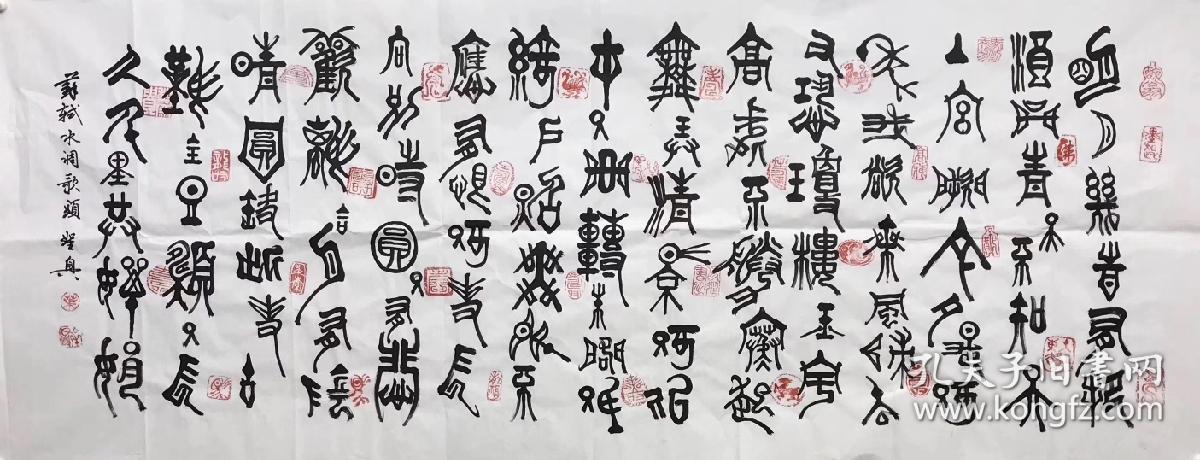 明月幾時有把
酒問青天不知天
上宮闕今夕是何
年我欲乘風歸去
又恐瓊樓玉宇
高處不勝寒起
舞弄清影何似
在人間轉朱閣低
綺戶照無眠不
應有恨何事長
向別時圓人有悲
歡離合月有陰
晴圓缺此事古
難全但願人長
久千里共嬋娟
蘇軾水調歌頭
孔夫子旧书网
www.kongfz.com